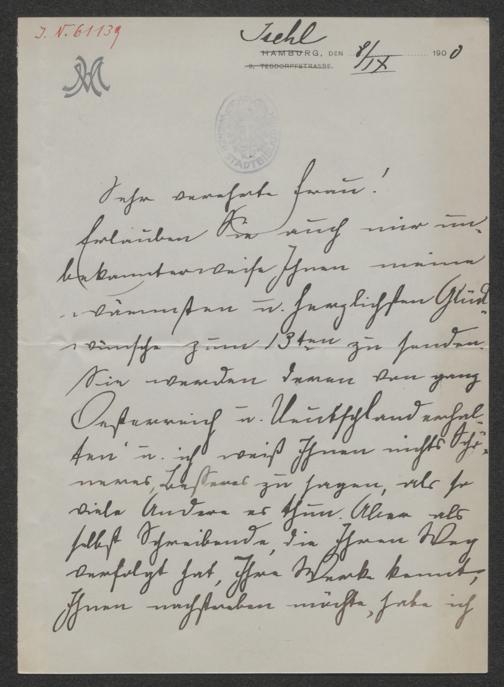 I. N. 61139
Ischl
HAMBURG, DEN 8/IX 1900
9, TESDORPFSTRASSE.
STADTBIBL
Sehr verehrte Frau!
Erlauben Sie auch mir un-
bekannterweise Ihnen meine
wärmsten u. herzlichsten Glück-
wünsche zum 13ten zu senden.
Sie werden deren von ganz
Oesterreich u. Deutschland erhal-
ten u. ich weiß Ihnen nichts Schö-
neres, Besseres zu sagen, als so
viele Andere es thun. Aber als
selbst Schreibende, die Ihren Weg
verfolgt hat, Ihre Werke kennt,
Ihnen nachstreben möchte, habe ich